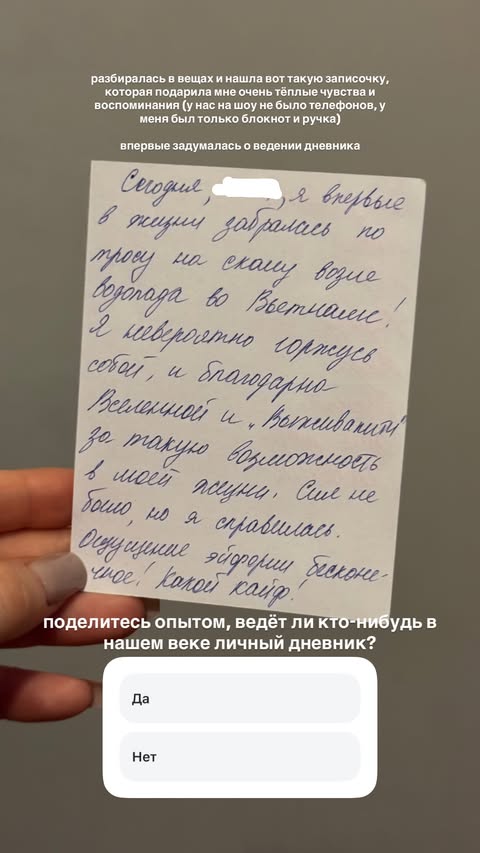 разбиралась в вещах и нашла вот такую записочку,
которая подарила мне очень тёплые чувства и
воспоминания (у нас на шоу не было телефонов, у
меня был только блокнот и ручка)
впервые задумалась о ведении дневника
Сегодня, , я впервые
в жизни забралась по
тросу на скалу возле
водопада во Вьетнаме!
Я невероятно горжусь
собой, и благодарна
Вселенной и „Выживалити"
за такую возможность
в моей жизни. Сил не
было, но я справилась.
Ощущение эйфории бесконе-
чное! Какой кайф!
поделитесь опытом, ведёт ли кто-нибудь в
нашем веке личный дневник?
Да
Нет